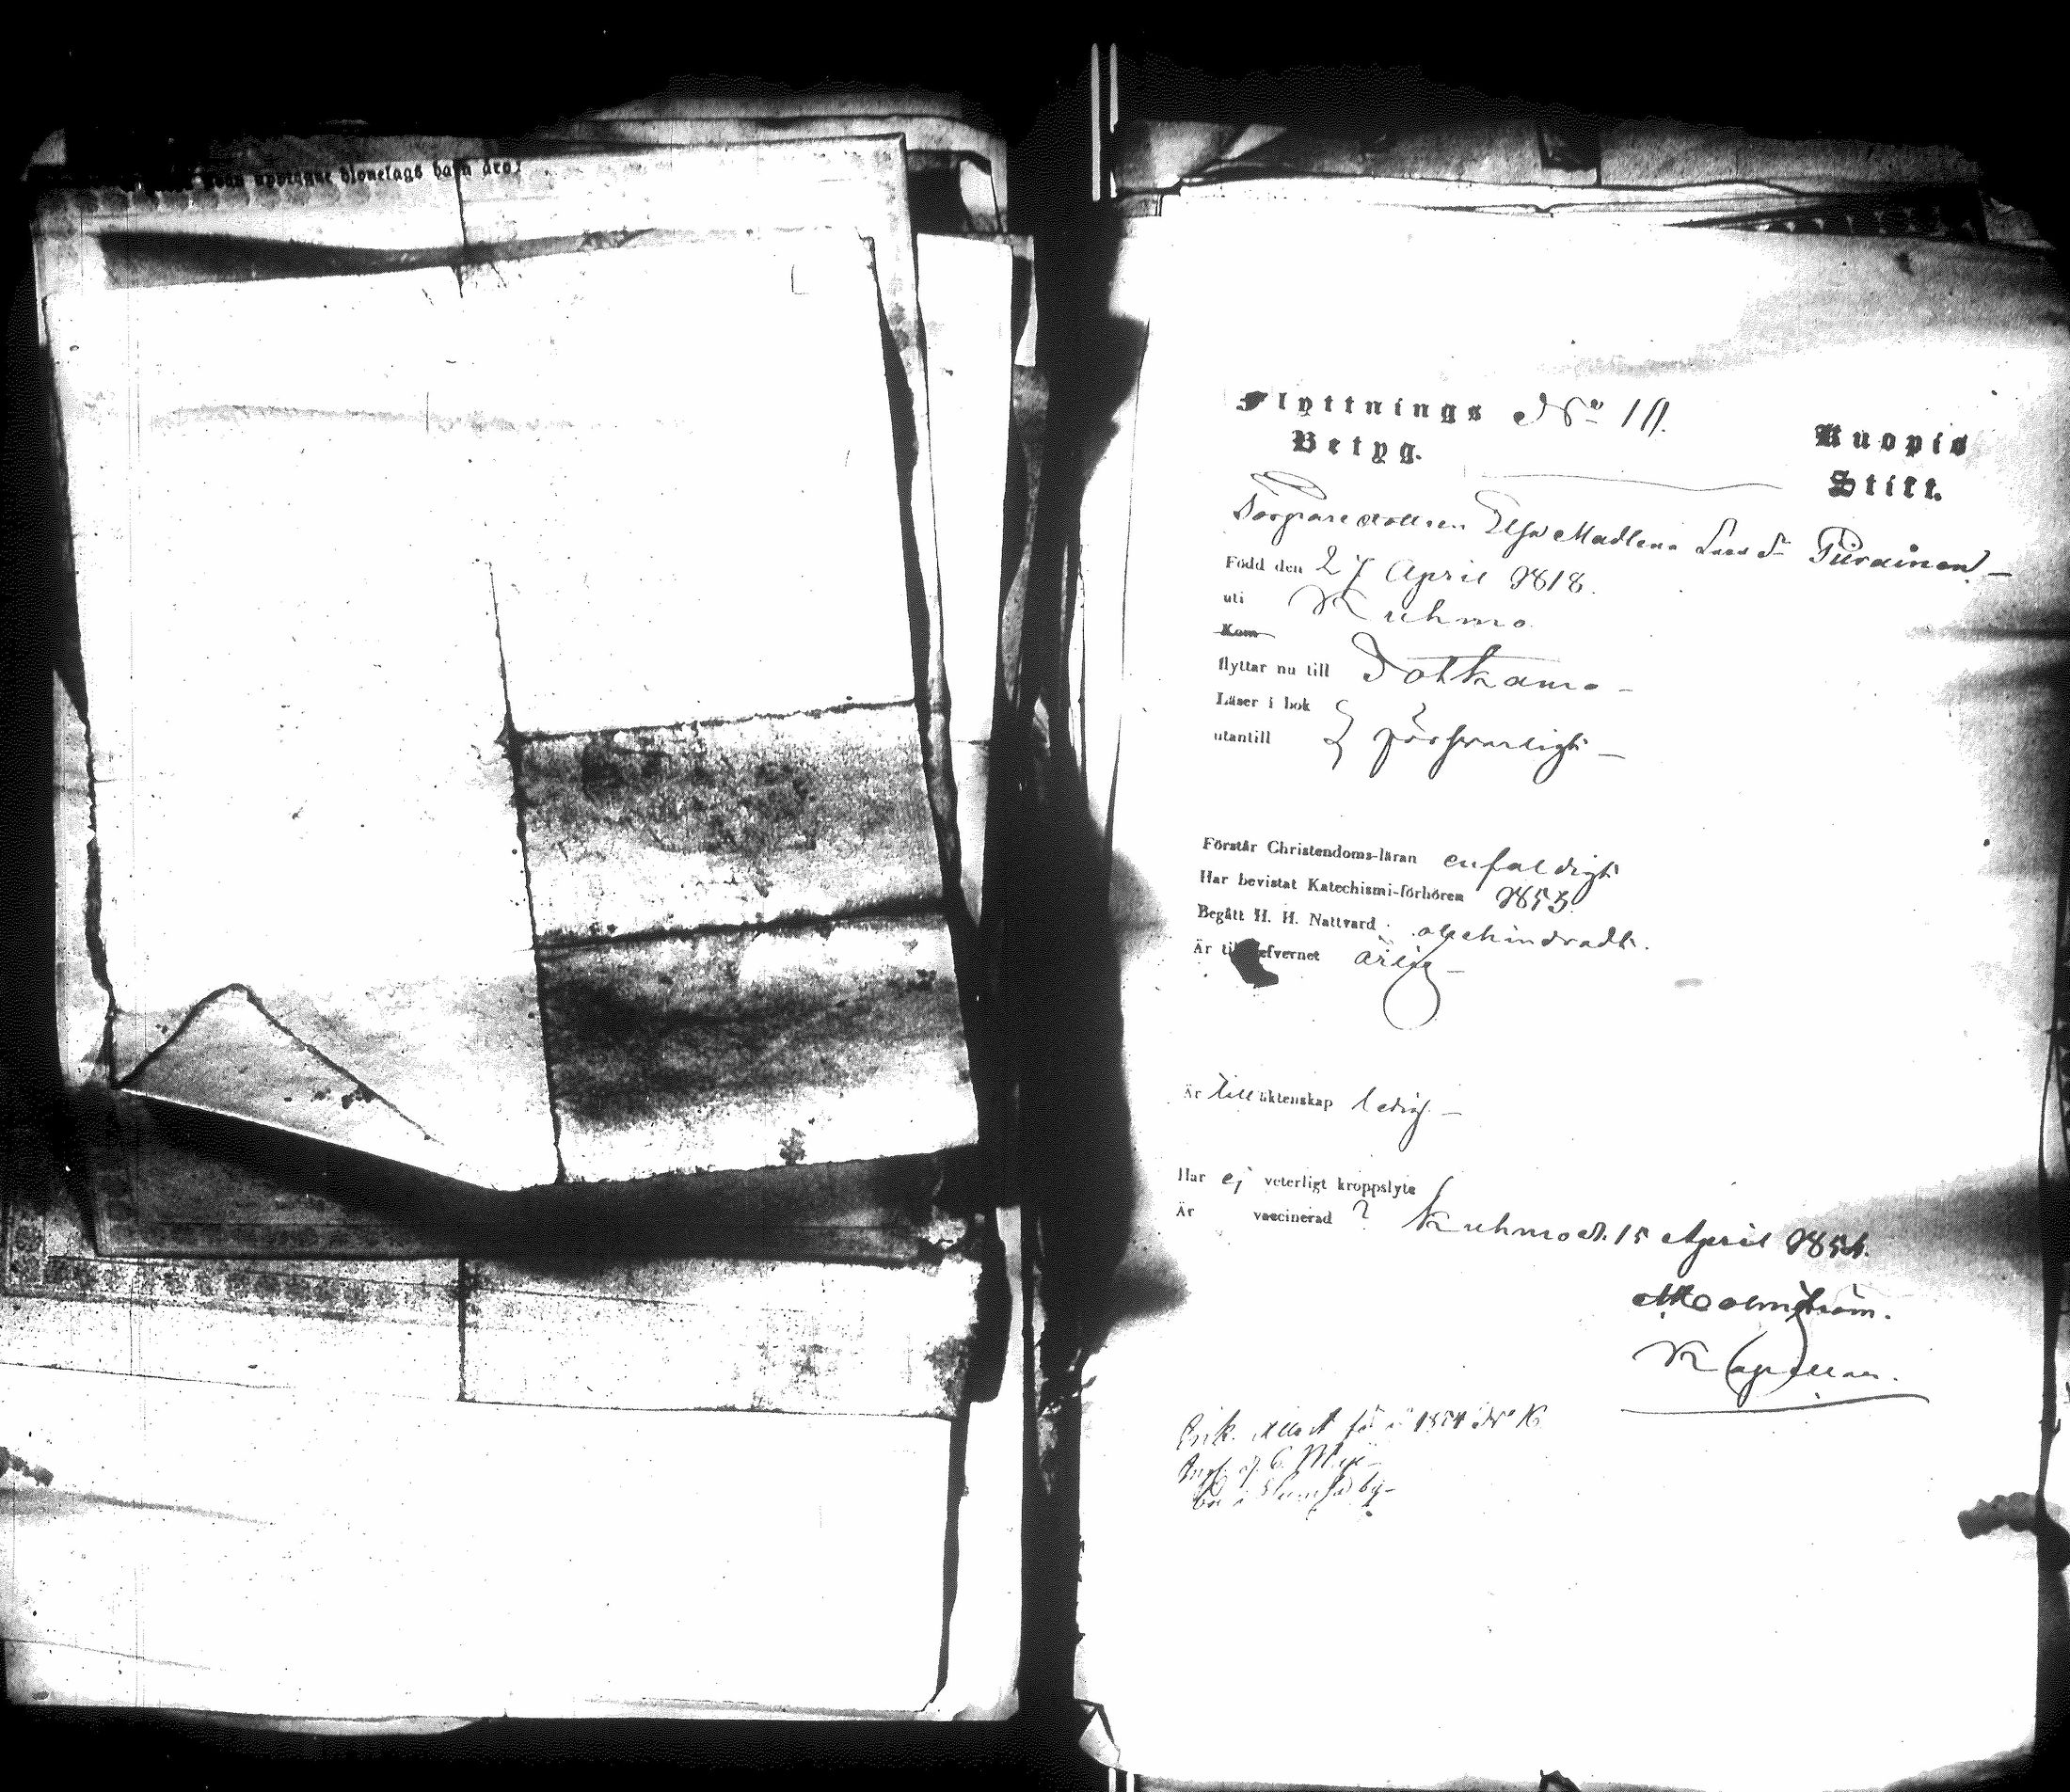 hjonelags barn äro:
Flyttnings N:o
Betyg.
Kuopio
Stift.
Elsa Madlena Lars dr Piirainen
Född den 27 April 1818.
uti Kuhmo
Kom
flyttar nu till Sotkamo
Läser i bok
utantill } försvarligt
Förstår Christendoms-läran enfaldigt
Har bevistat Katechismi-förhören 1853.
Begått H. H. Nattvard obehindradt.
Är till lefvernet ärlig
Är till äktenskap ledig
Har ej veterligt kroppslyte
Är vaccinerad ? Kuhmo d. 15 April 1854.
Holmström.
Kapellan.
1854 N:o